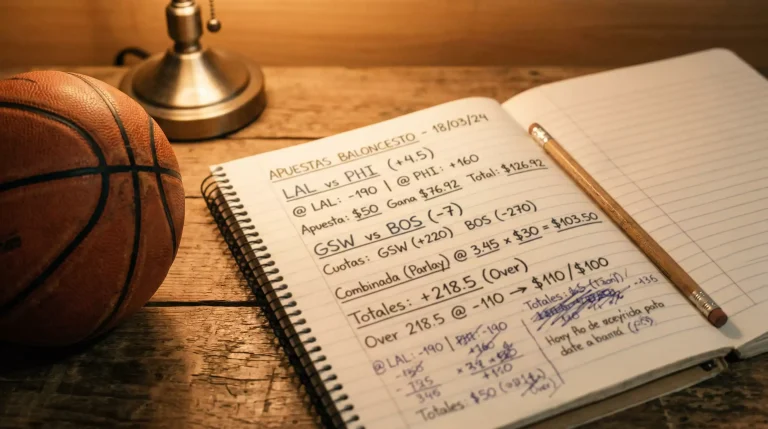 APUESTAS BALONCESTO - 18/03/24
LAL vs PHI (+4.5)
@ LAL: -190 | @ PHI: +160
Apuesta: $50 Gana $76.92 Total: $126.92
GSW vs BOS (-7)
Cuotas: GSW (+220) BOS (-270)
Combinada (Parlay) @ 3.45 x $30 = $103.50
Totales: +218.5 (Over)
Over 218.5 @ -110 → $110/$100
@ LAL: -190 | -190
-125
345
+110
Totales: $50
Totales:
date a band